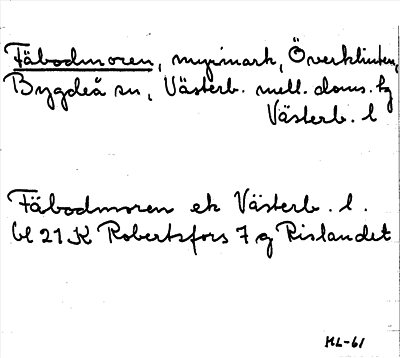 Fäbodmoren, myrmark, Överklinten,
Bygdeå sn, Västerb. mell. doms. hg
Västerb. l
Fäbodmoren ek Västerb. l.
bl 21 K Robertsfors 7 g Rislandet
HL-61